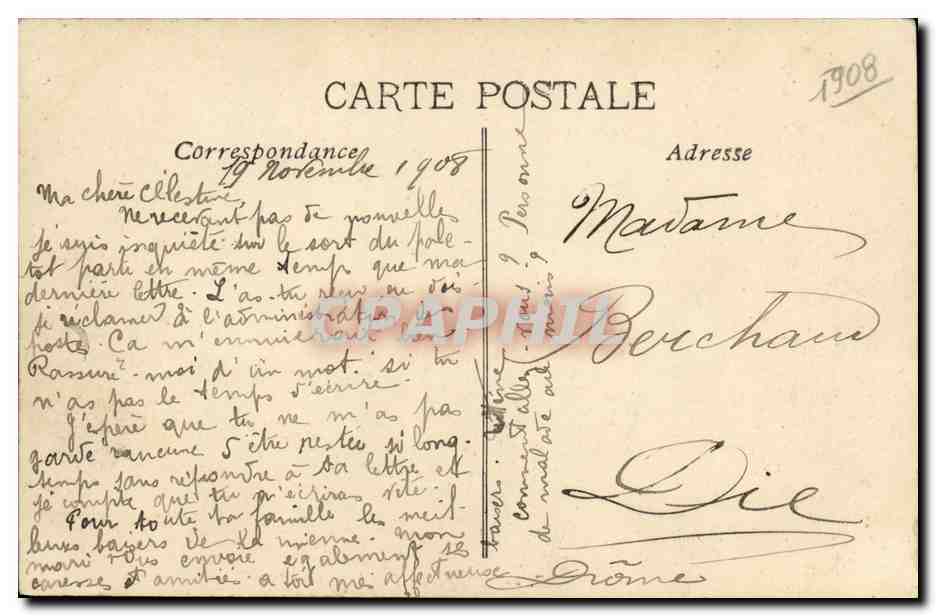 1908
CARTE POSTALE
Correspondance
Adresse
19 Novembre 1908
Ma chère Célestine,
Ne recevant pas de nouvelles
je suis inquiète sur le sort du pale-
tot parti en même temps que ma
dernière lettre. L'as-tu reçu ou dois-
je reclamer à l'administration des
postes. Ça m'ennuierait
Rassure-moi d'un mot. si tu
n'as pas le temps d'écrire.
J'espère que tu ne m'as pas
gardé rancune d'être restée si long-
temps sans répondre à ta lettre et
je compte que tu m'écriras vite.
Pour toute ta famille les meil-
leurs baisers de la mienne. Mon
mari vous envoie également ses
caresses et amitiés a toi mes affectueuse
baisers.
comment allez-vous? Personne
de malade au moins?
Madame
Berchaud
Die
Drôme
CPAPHIL